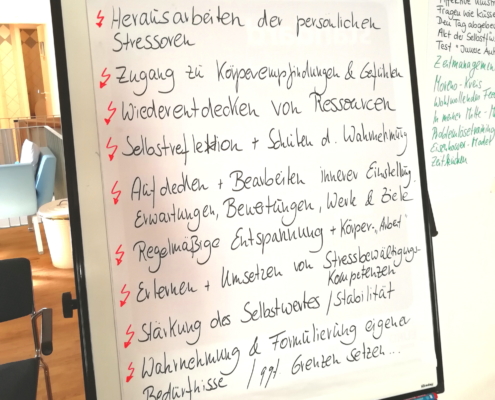 Herausarbeiten der persönlichen
Stressoren
Zugang zu Körperempfindungen & Gefühlen
Wiederentdecken von Ressourcen
Selbstreflektion + Schulen d. Wahrnehmung
Aufdecken + Bearbeiten innerer Einstellung.
Erwartungen, Bewertungen, Werte & Ziele
Regelmäßige Entspannung + Körper-"Arbeit"
Erlernen + Umsetzen von Stressbewältigungs-
kompetenzen
Stärkung des Selbstwertes / Stabilität
Wahrnehmung & Formulierung eigener
Bedürfnisse / ggf. Grenzen setzen...
Fragen wie
Den Tag
Akt der
Test
Zeitmanagemen
Moreno - Kreis
In meiner Mitte -
Problemlösetraining
Eisenhower-Model